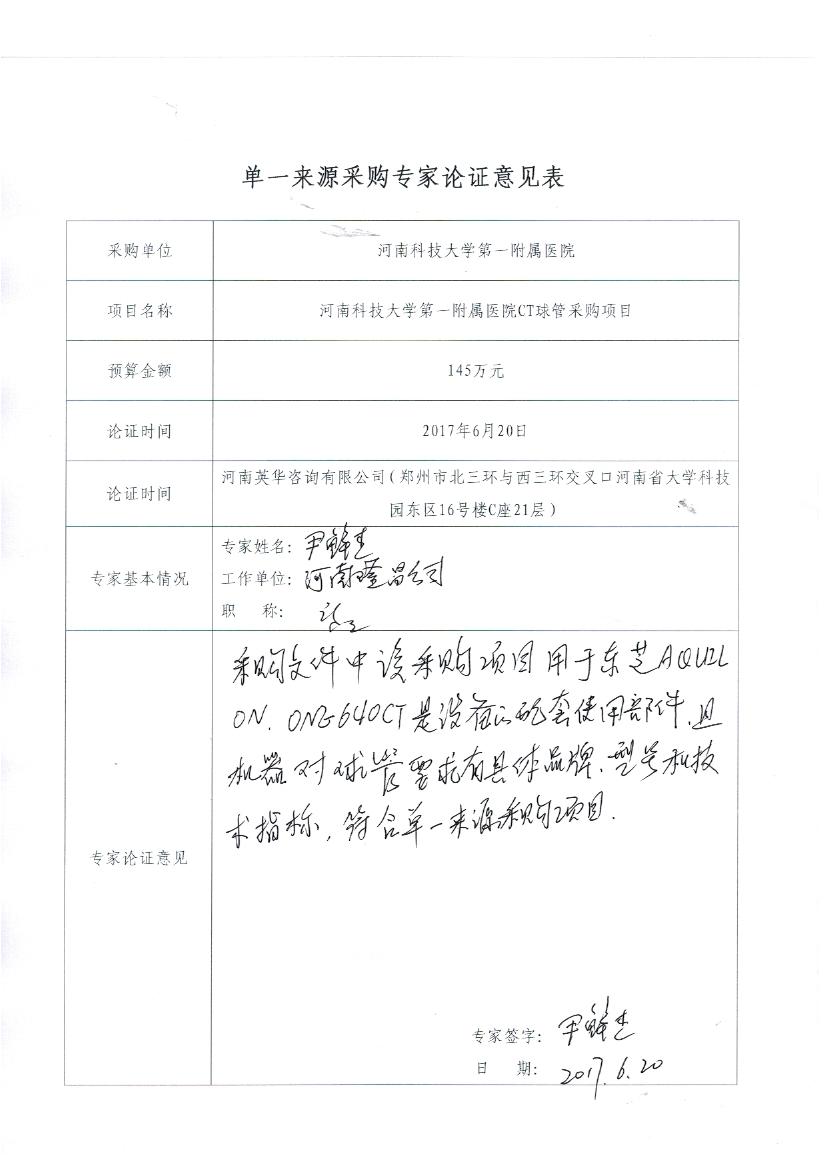 单一来源采购专家论证意见表
采购单位
河南科技大学第一附属医院
项目名称
河南科技大学第一附属医院CT球管采购项目
预算金额
145万元
论证时间
2017年6月20日
论证时间
河南英华咨询有限公司(郑州市北三环与西三环交叉口河南省大学科技
园东区16号楼C座21层)
专家基本情况
专家姓名: 尹
工作单位: 河南 昌公司
职 称:
专家论证意见
采购文件中该采购项目用于东芝AQUIL
ON. ONE640CT是设备的配套使用部件,且
机器对球管要求有具体品牌、型号和技
术指标,符合单一来源采购项目.
专家签字: 尹
日 期: 2017.6.20